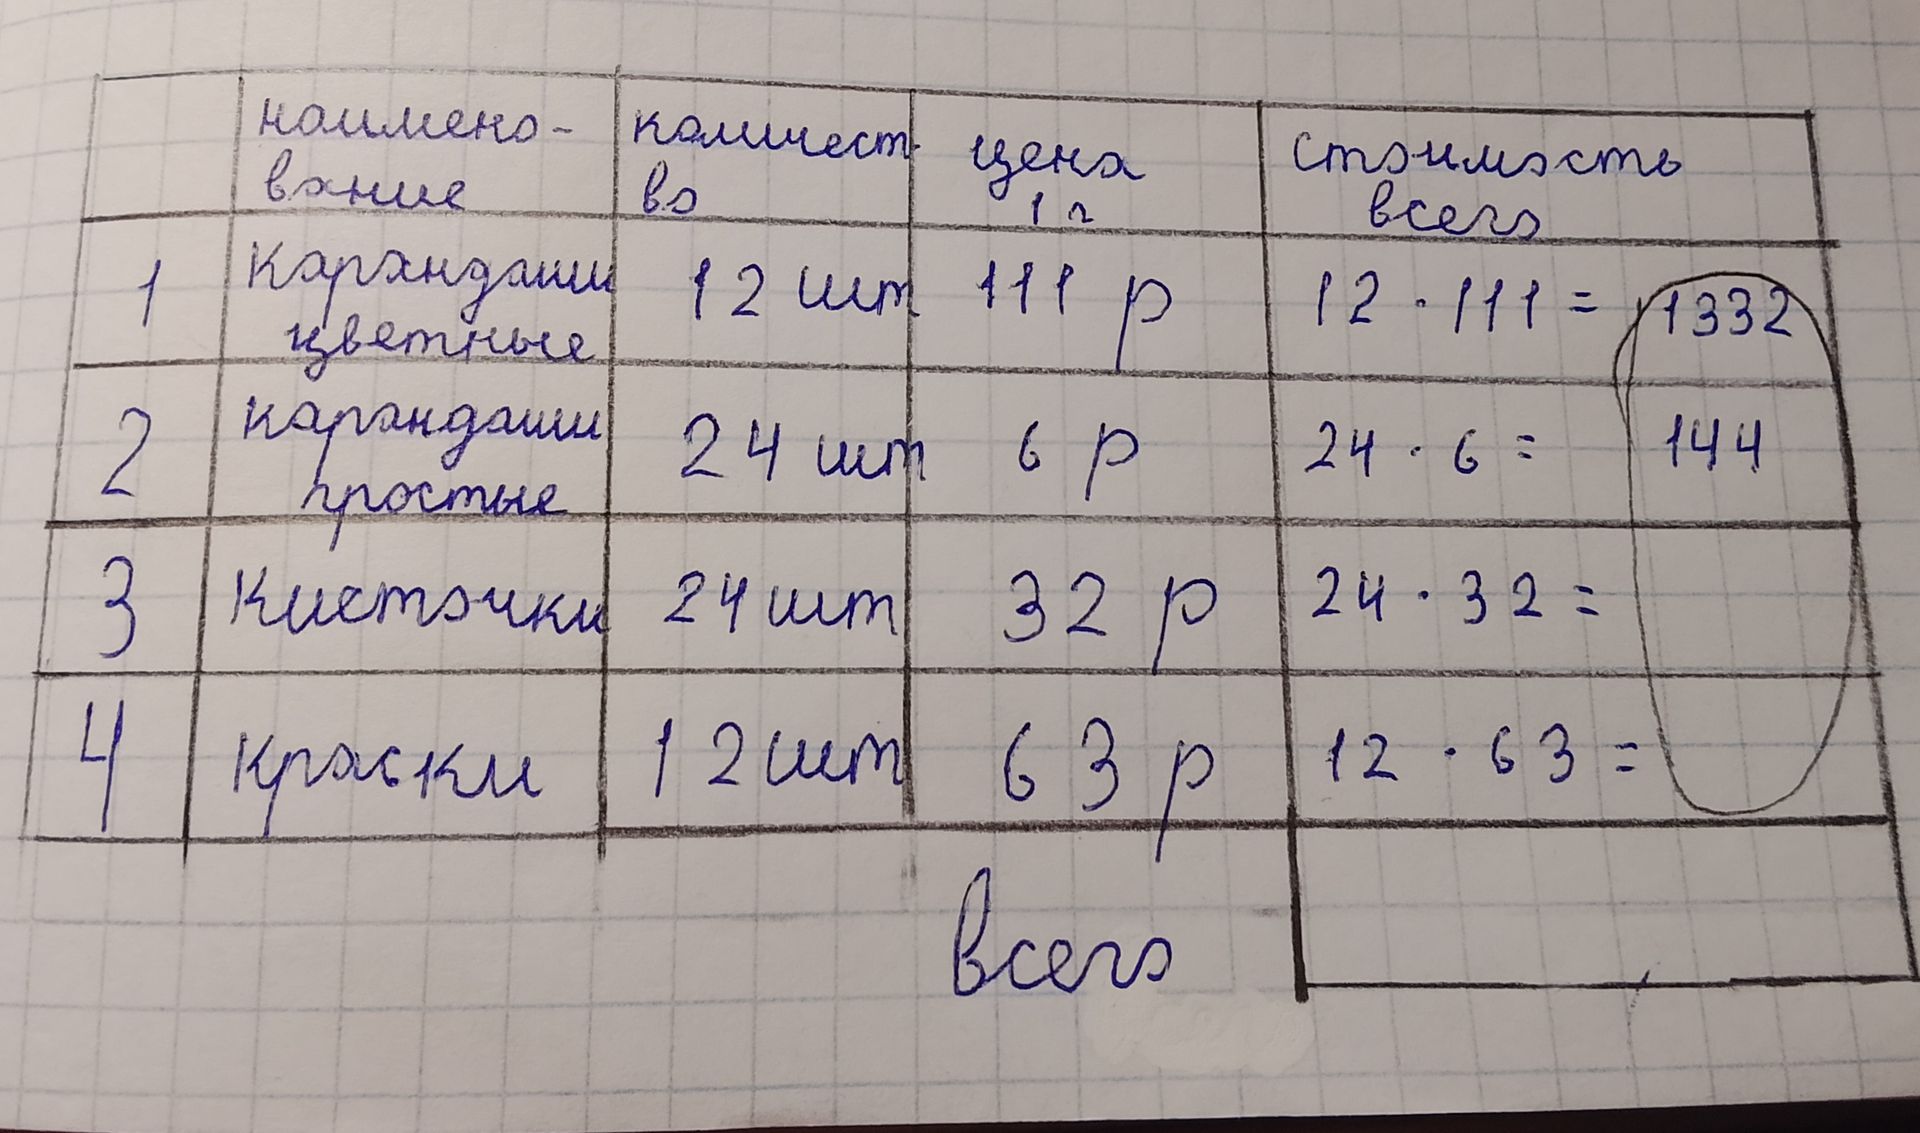 наимено-
вание
количест
во
цена
1 г
стоимость
всего
1
карандаши
цветные
12 шт
111 р
12 · 111 = 1332
2
карандаши
простые
24 шт
6 р
24 · 6 = 144
3
Кисточки
24 шт
32 р
24 · 32 =
4
краски
12 шт
63 р
12 · 63 =
всего